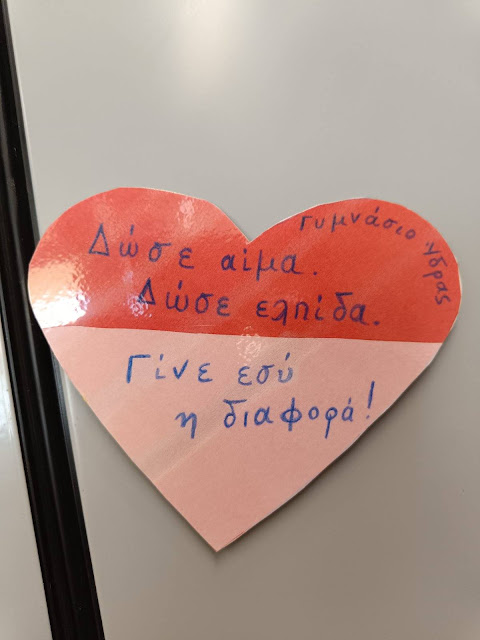 Γυμνάσιο Ύδρας
Δώσε αίμα.
Δώσε ελπίδα.
Γίνε εσύ
η διαφορά!